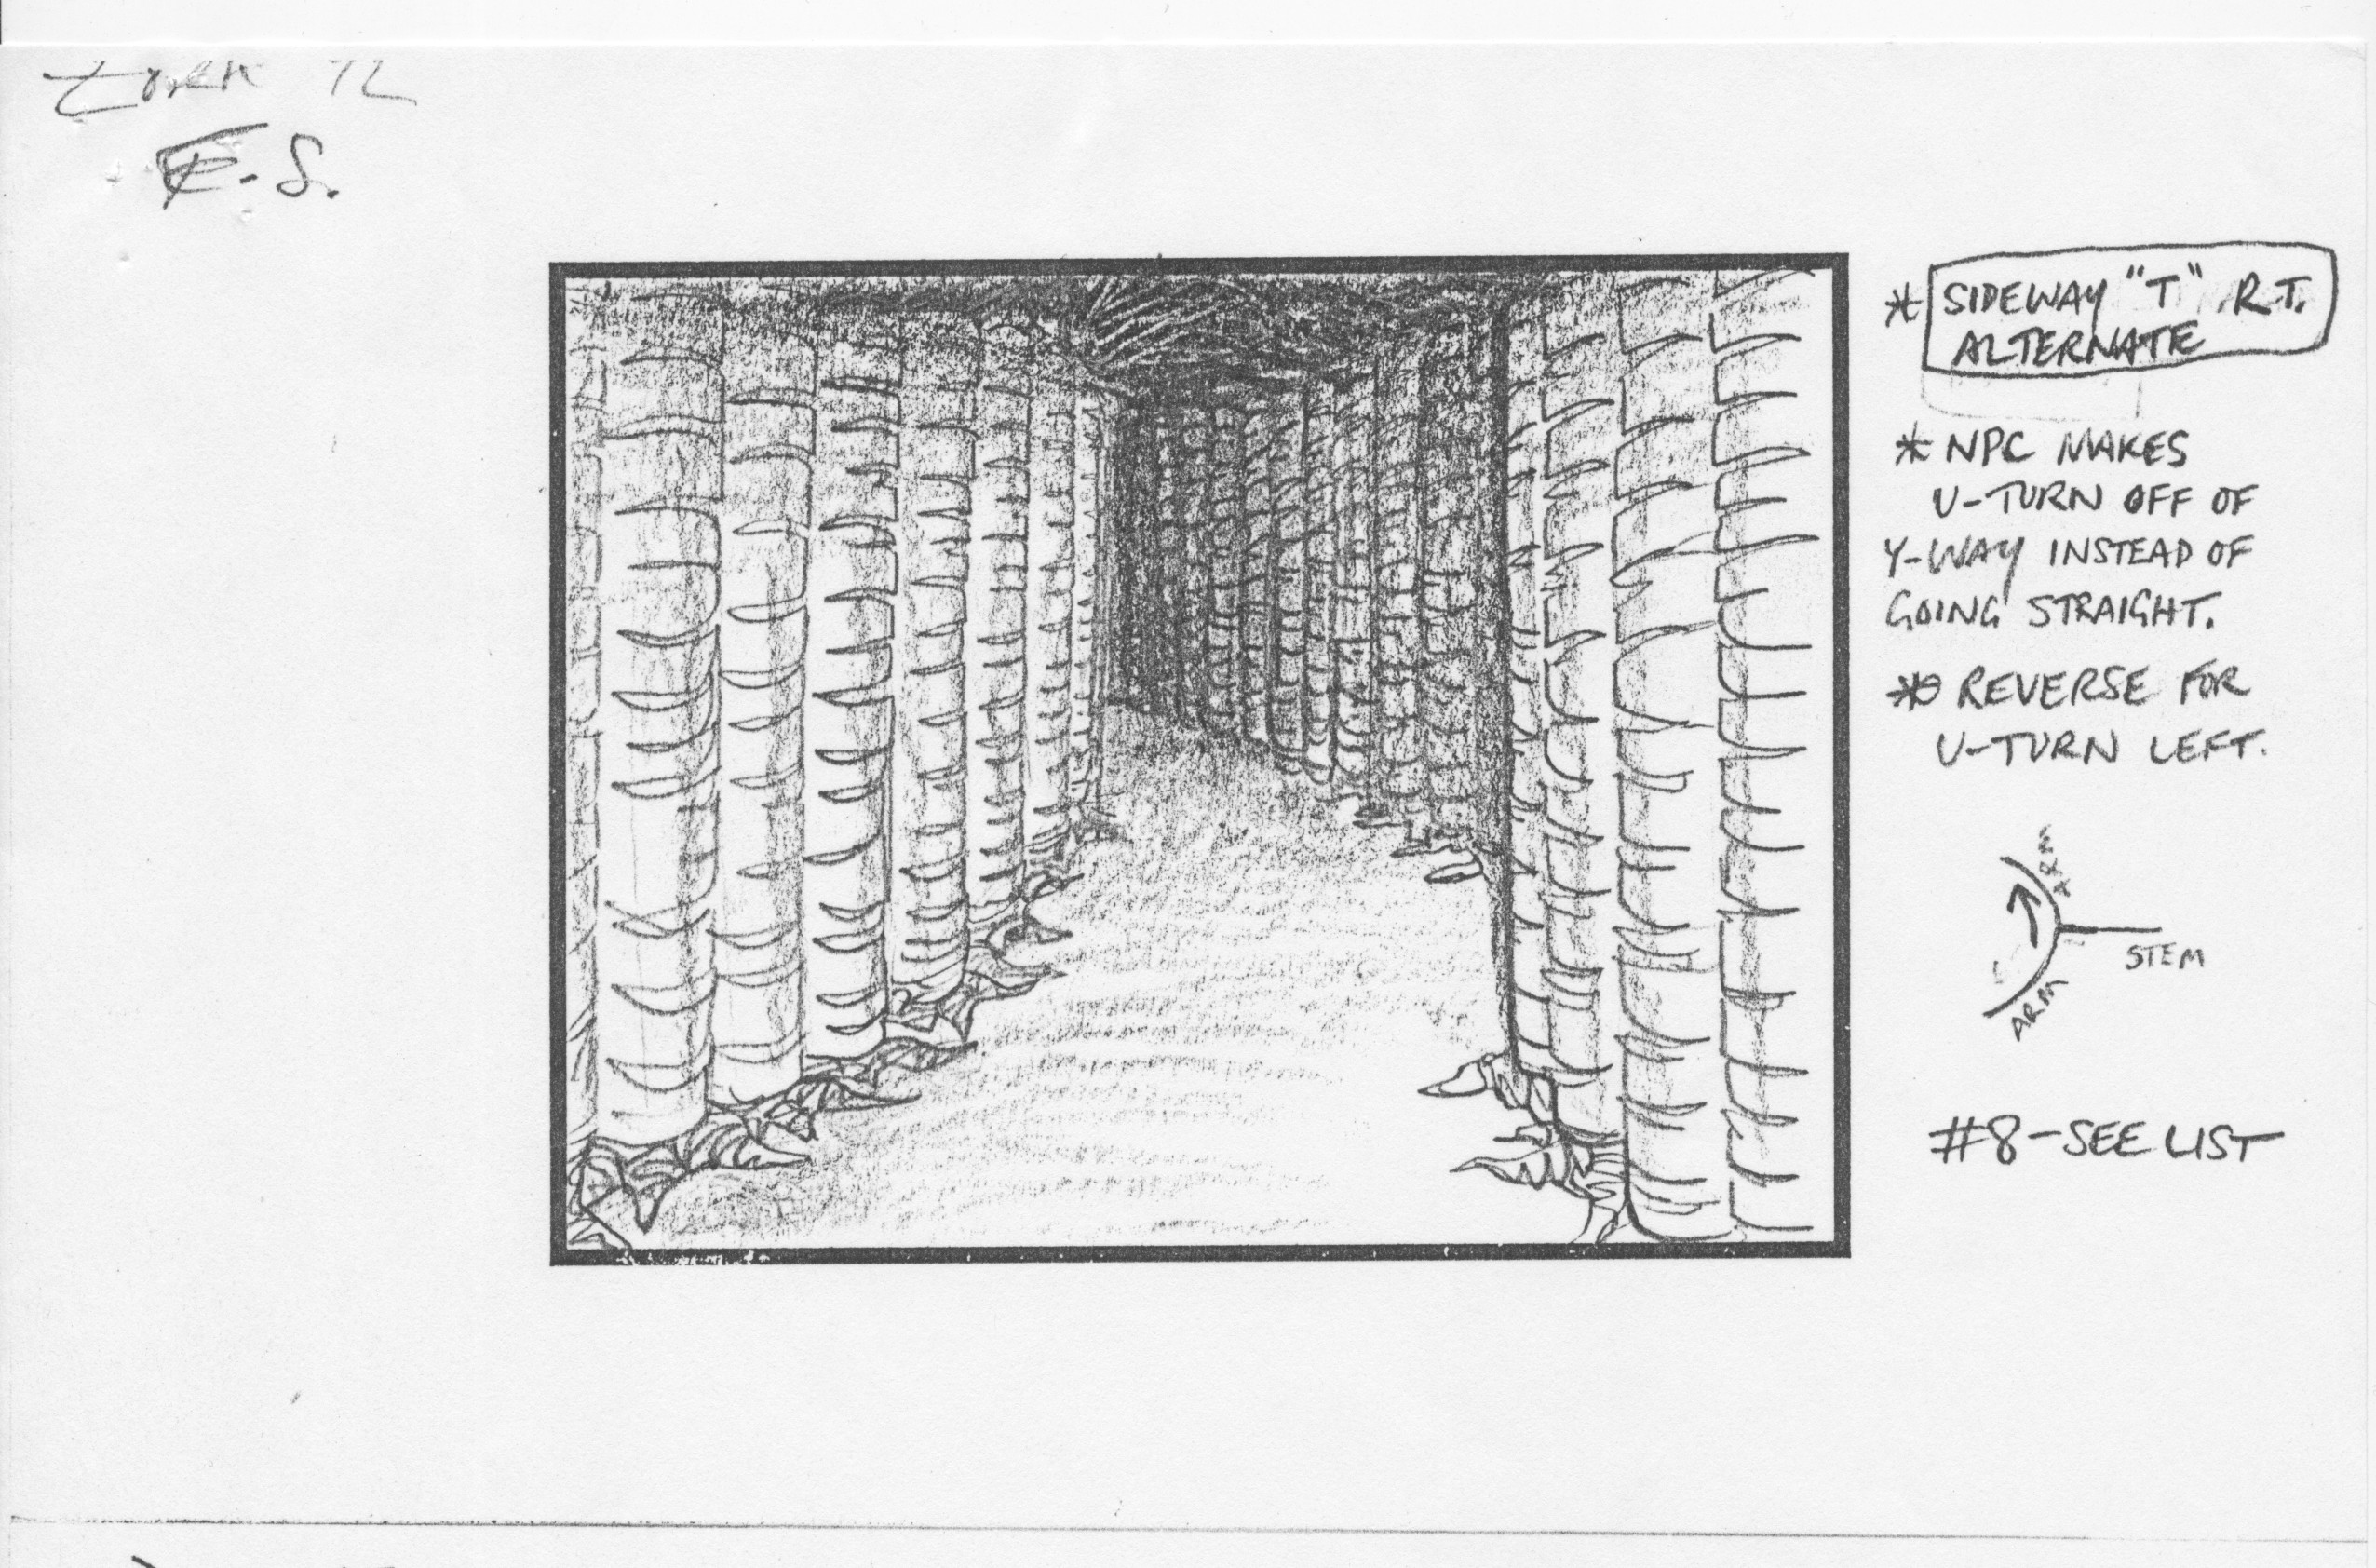 E.S.
* SIDEWAY "T" R.T.
ALTERNATE
* NPC MAKES
U-TURN OFF OF
Y-WAY INSTEAD OF
GOING STRAIGHT.
* REVERSE FOR
U-TURN LEFT.
ARM
STEM
ARM
#8-SEE LIST